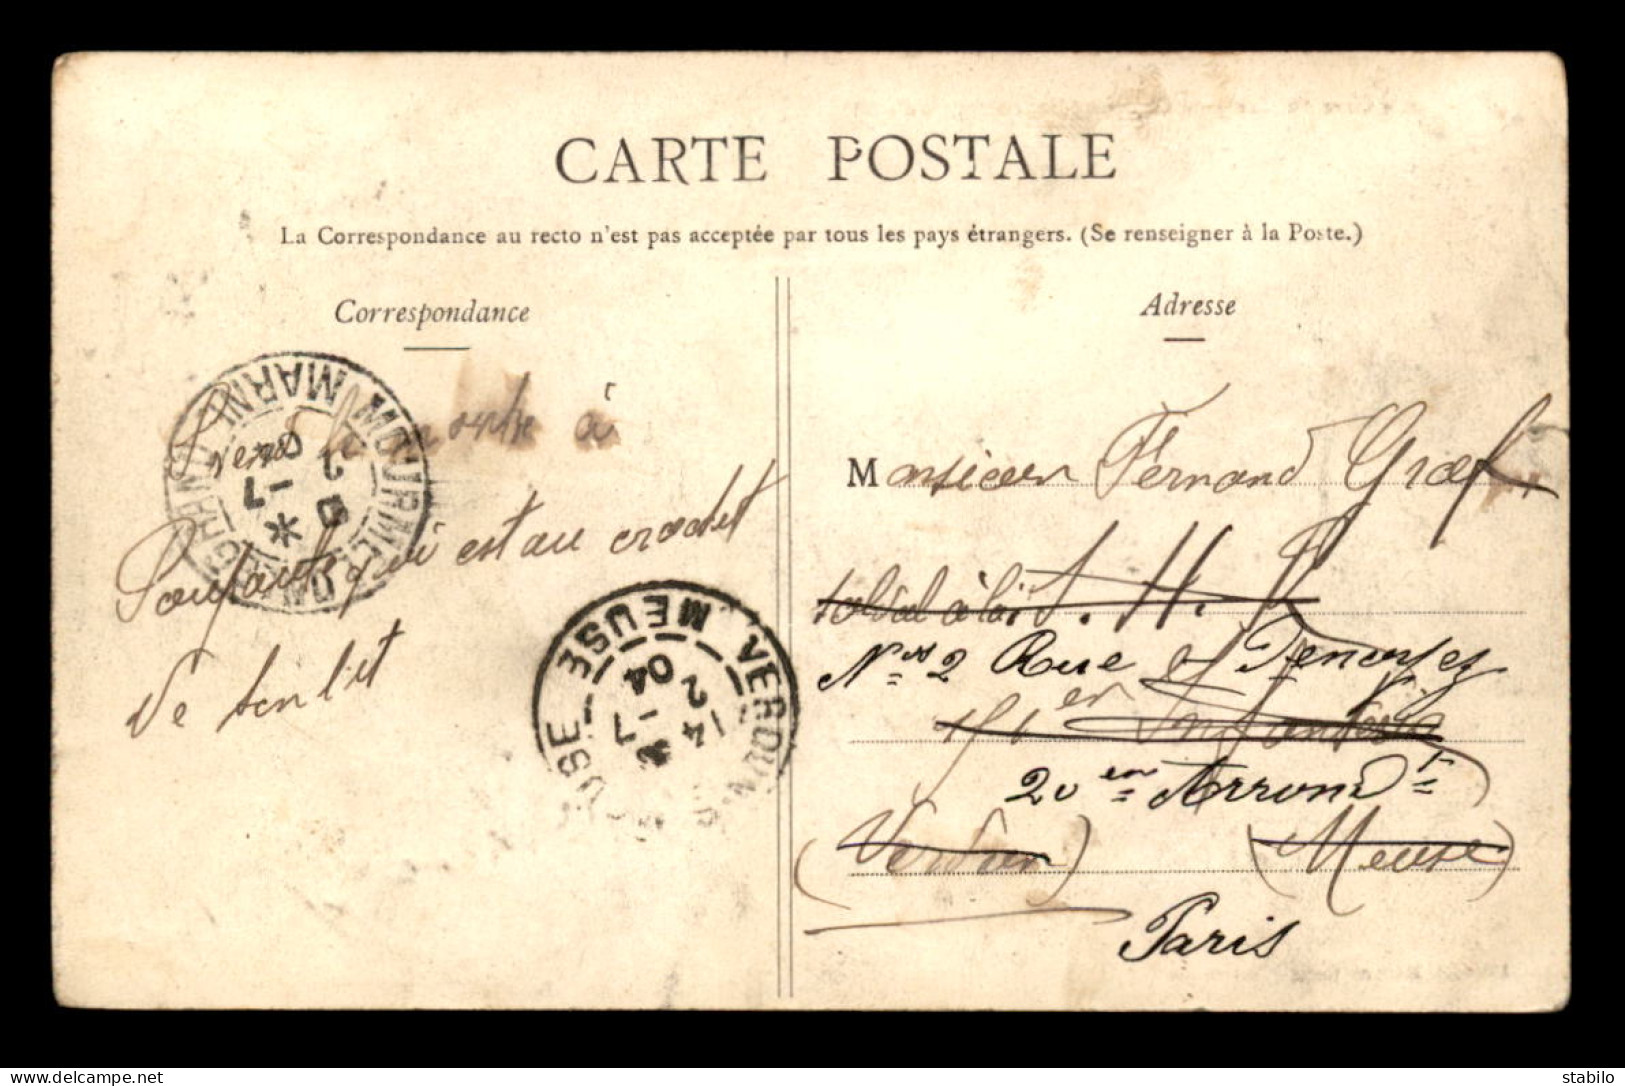 CARTE POSTALE
La Correspondance au recto n'est pas acceptée par tous les pays étrangers. (Se renseigner à la Poste.)
Correspondance
à
qui est au crochet
de ton lit
MOURMELON MARNE
2
7
04
VERDUN MEUSE
14
2
7
04
Adresse
Monsieur Fernand Graef
soldat à la S. H. R
Nos 2 Rue
er Infanterie
20em Arrondt
(Verdun) (Meuse)
Paris
stabilo